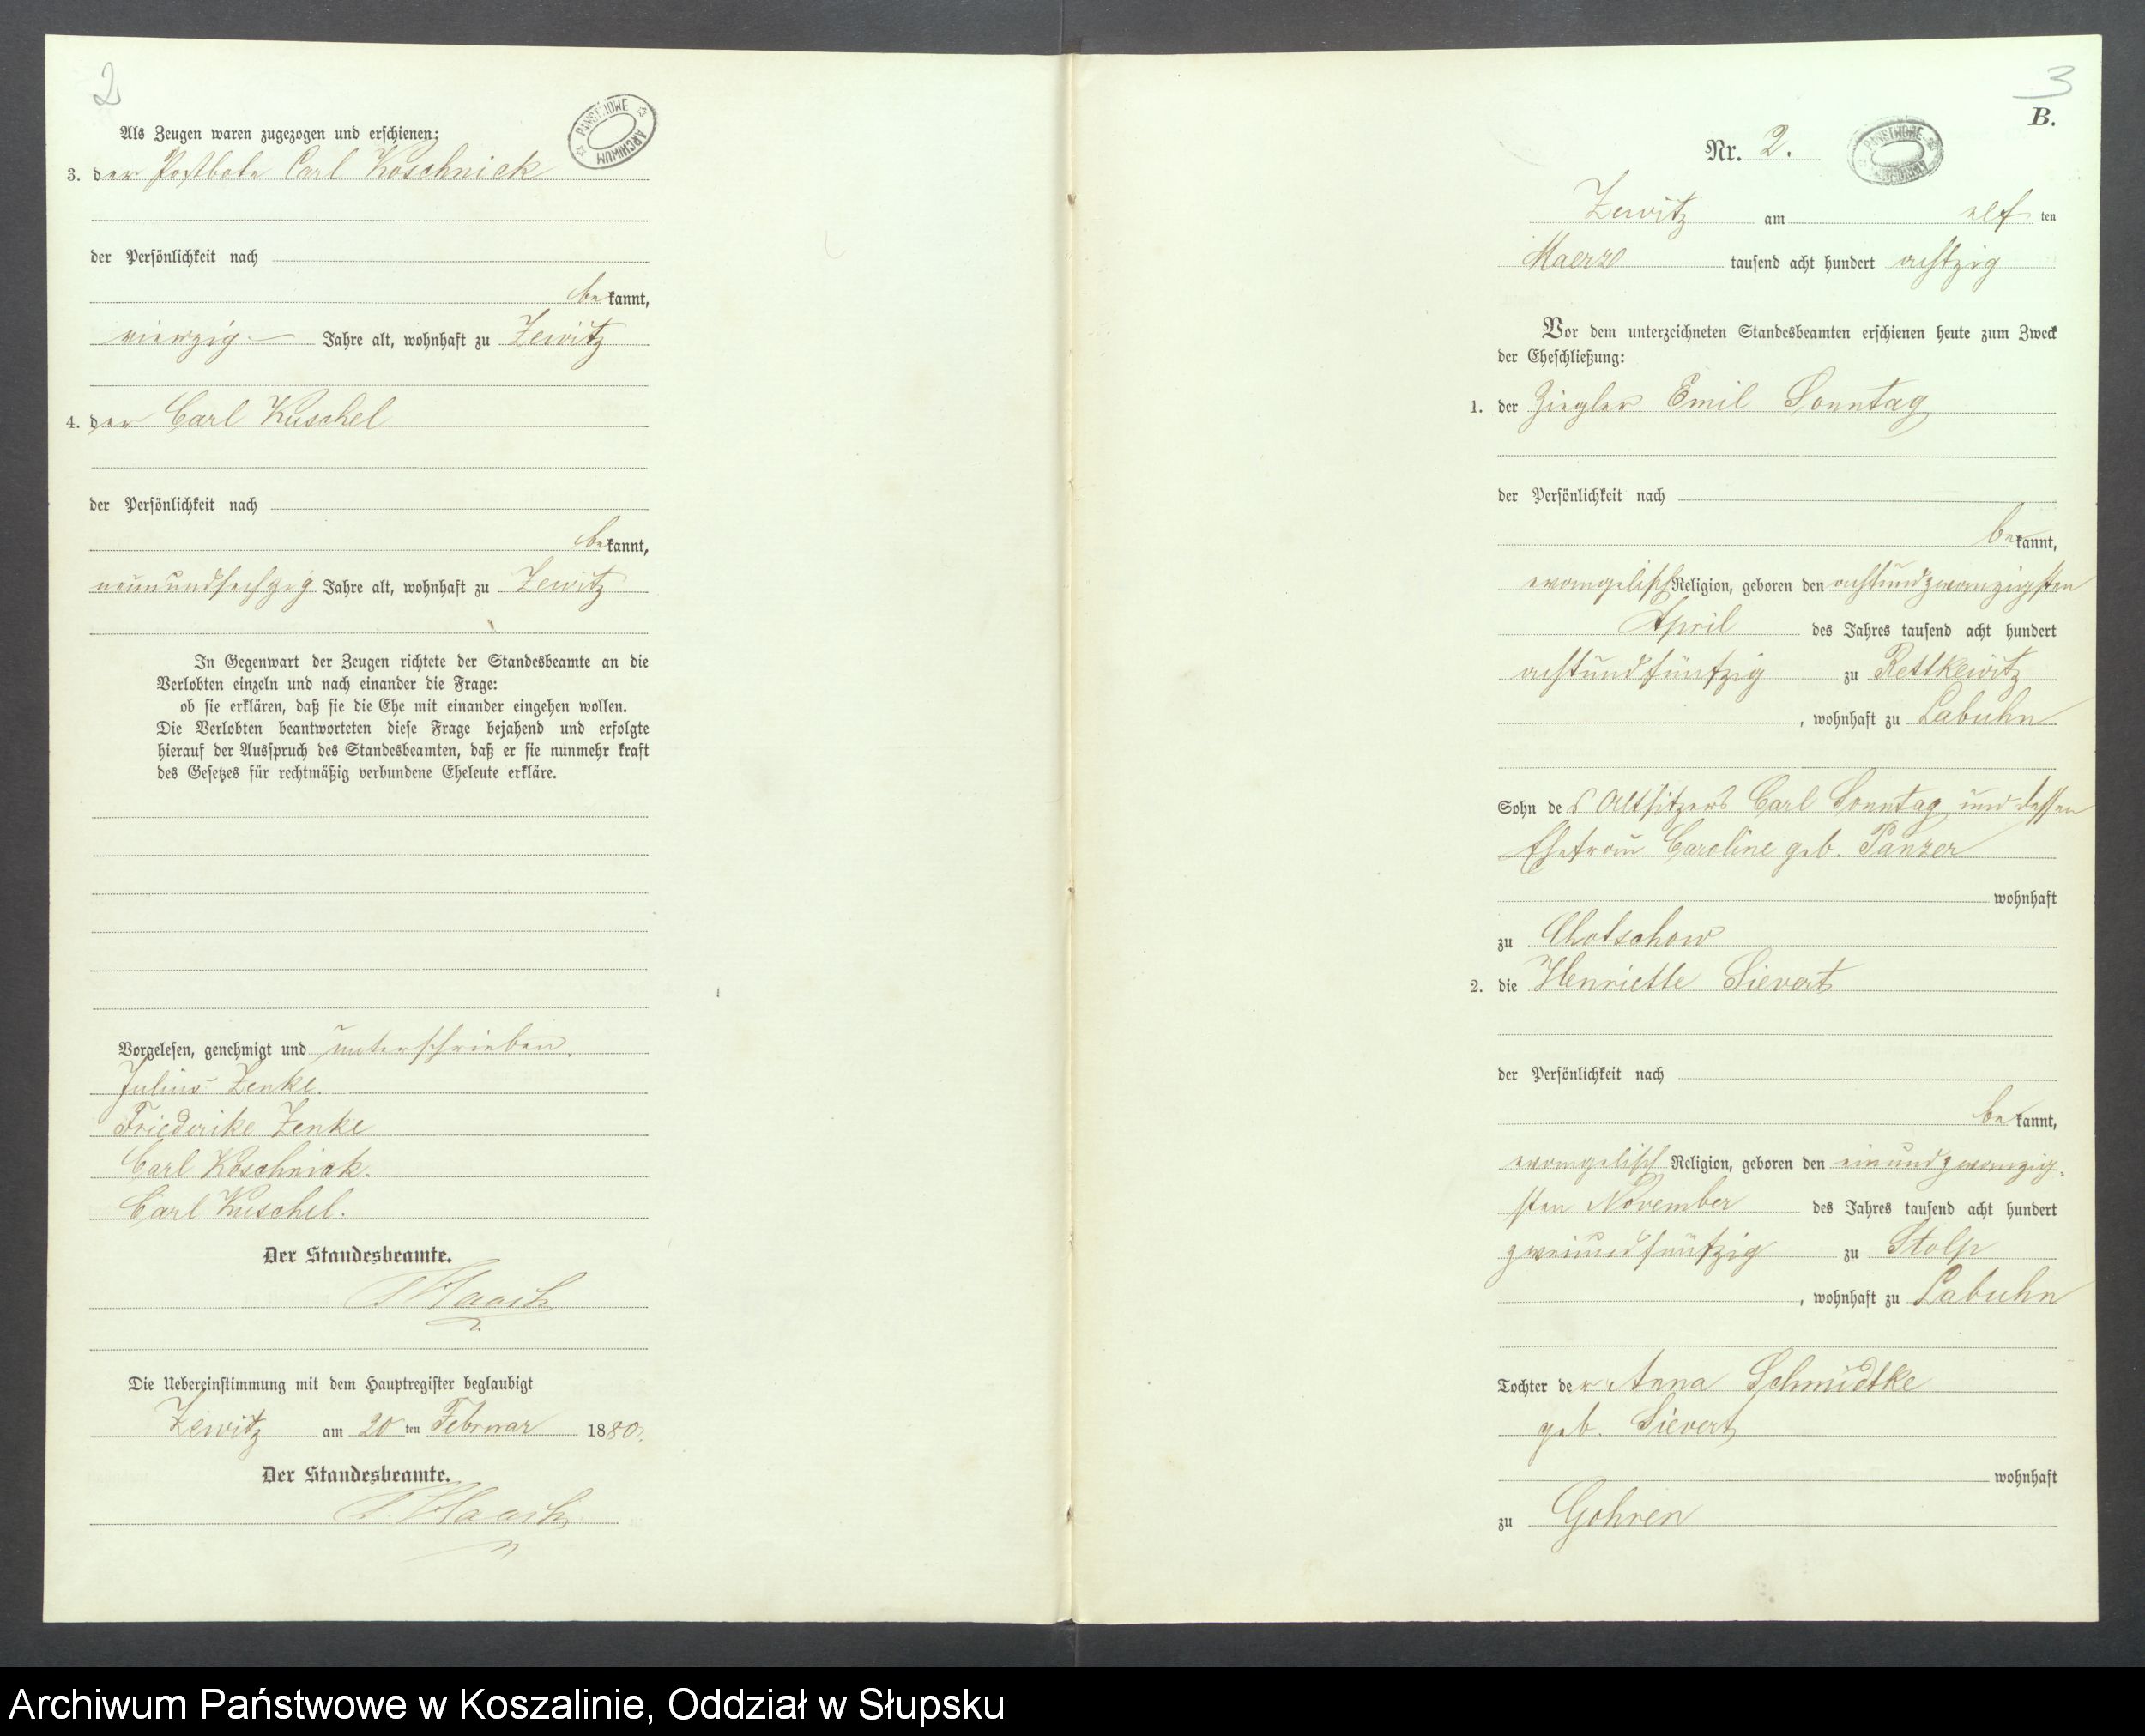 2
Als Zeugen waren zugezogen und erschienen:
PANSTWOWE ARCHIWUM
3. der Postbote Carl Koschnick
der Persönlichkeit nach
bekannt,
vierzig Jahre alt, wohnhaft zu Zewitz
4. der Carl Kuschel
der Persönlichkeit nach
bekannt,
neunundsechzig Jahre alt, wohnhaft zu Zewitz
In Gegenwart der Zeugen richtete der Standesbeamte an die
Verlobten einzeln und nach einander die Frage:
ob sie erklären, daß sie die Ehe mit einander eingehen wollen.
Die Verlobten beantworteten diese Frage bejahend und erfolgte
hierauf der Ausspruch des Standesbeamten, daß er sie nunmehr kraft
des Gesetzes für rechtmäßig verbundene Eheleute erkläre.
Vorgelesen, genehmigt und unterschrieben.
Julius Zenke.
Friederike Zenke
Carl Koschnick.
Carl Kuschel.
Der Standesbeamte.
Die Uebereinstimmung mit dem Hauptregister beglaubigt
Zewitz am 20 ten Februar 1880.
Der Standesbeamte.
3
B.
Nr. 2.
PANSTWOWE ARCHIWUM
Zewitz am elf ten
Maerz tausend acht hundert achtzig
Vor dem unterzeichneten Standesbeamten erschienen heute zum Zweck
der Eheschließung:
1. der Ziegler Emil Sonntag
der Persönlichkeit nach
bekannt,
evangelisch Religion, geboren den achtundzwanzigsten
April des Jahres tausend acht hundert
achtundfünfzig zu Rettkewitz
, wohnhaft zu Labuhn
Sohn des Altsitzers Carl Sonntag und dessen
Ehefrau Caroline geb. Panzer
wohnhaft
zu Chotschow
2. die Henriette Sievert
der Persönlichkeit nach
bekannt,
evangelisch Religion, geboren den einundzwanzig-
sten November des Jahres tausend acht hundert
zweiundfünfzig zu Stolp
, wohnhaft zu Labuhn
Tochter der Anna Schmidtke
geb. Sievert
wohnhaft
zu Gohren
Archiwum Państwowe w Koszalinie, Oddział w Słupsku